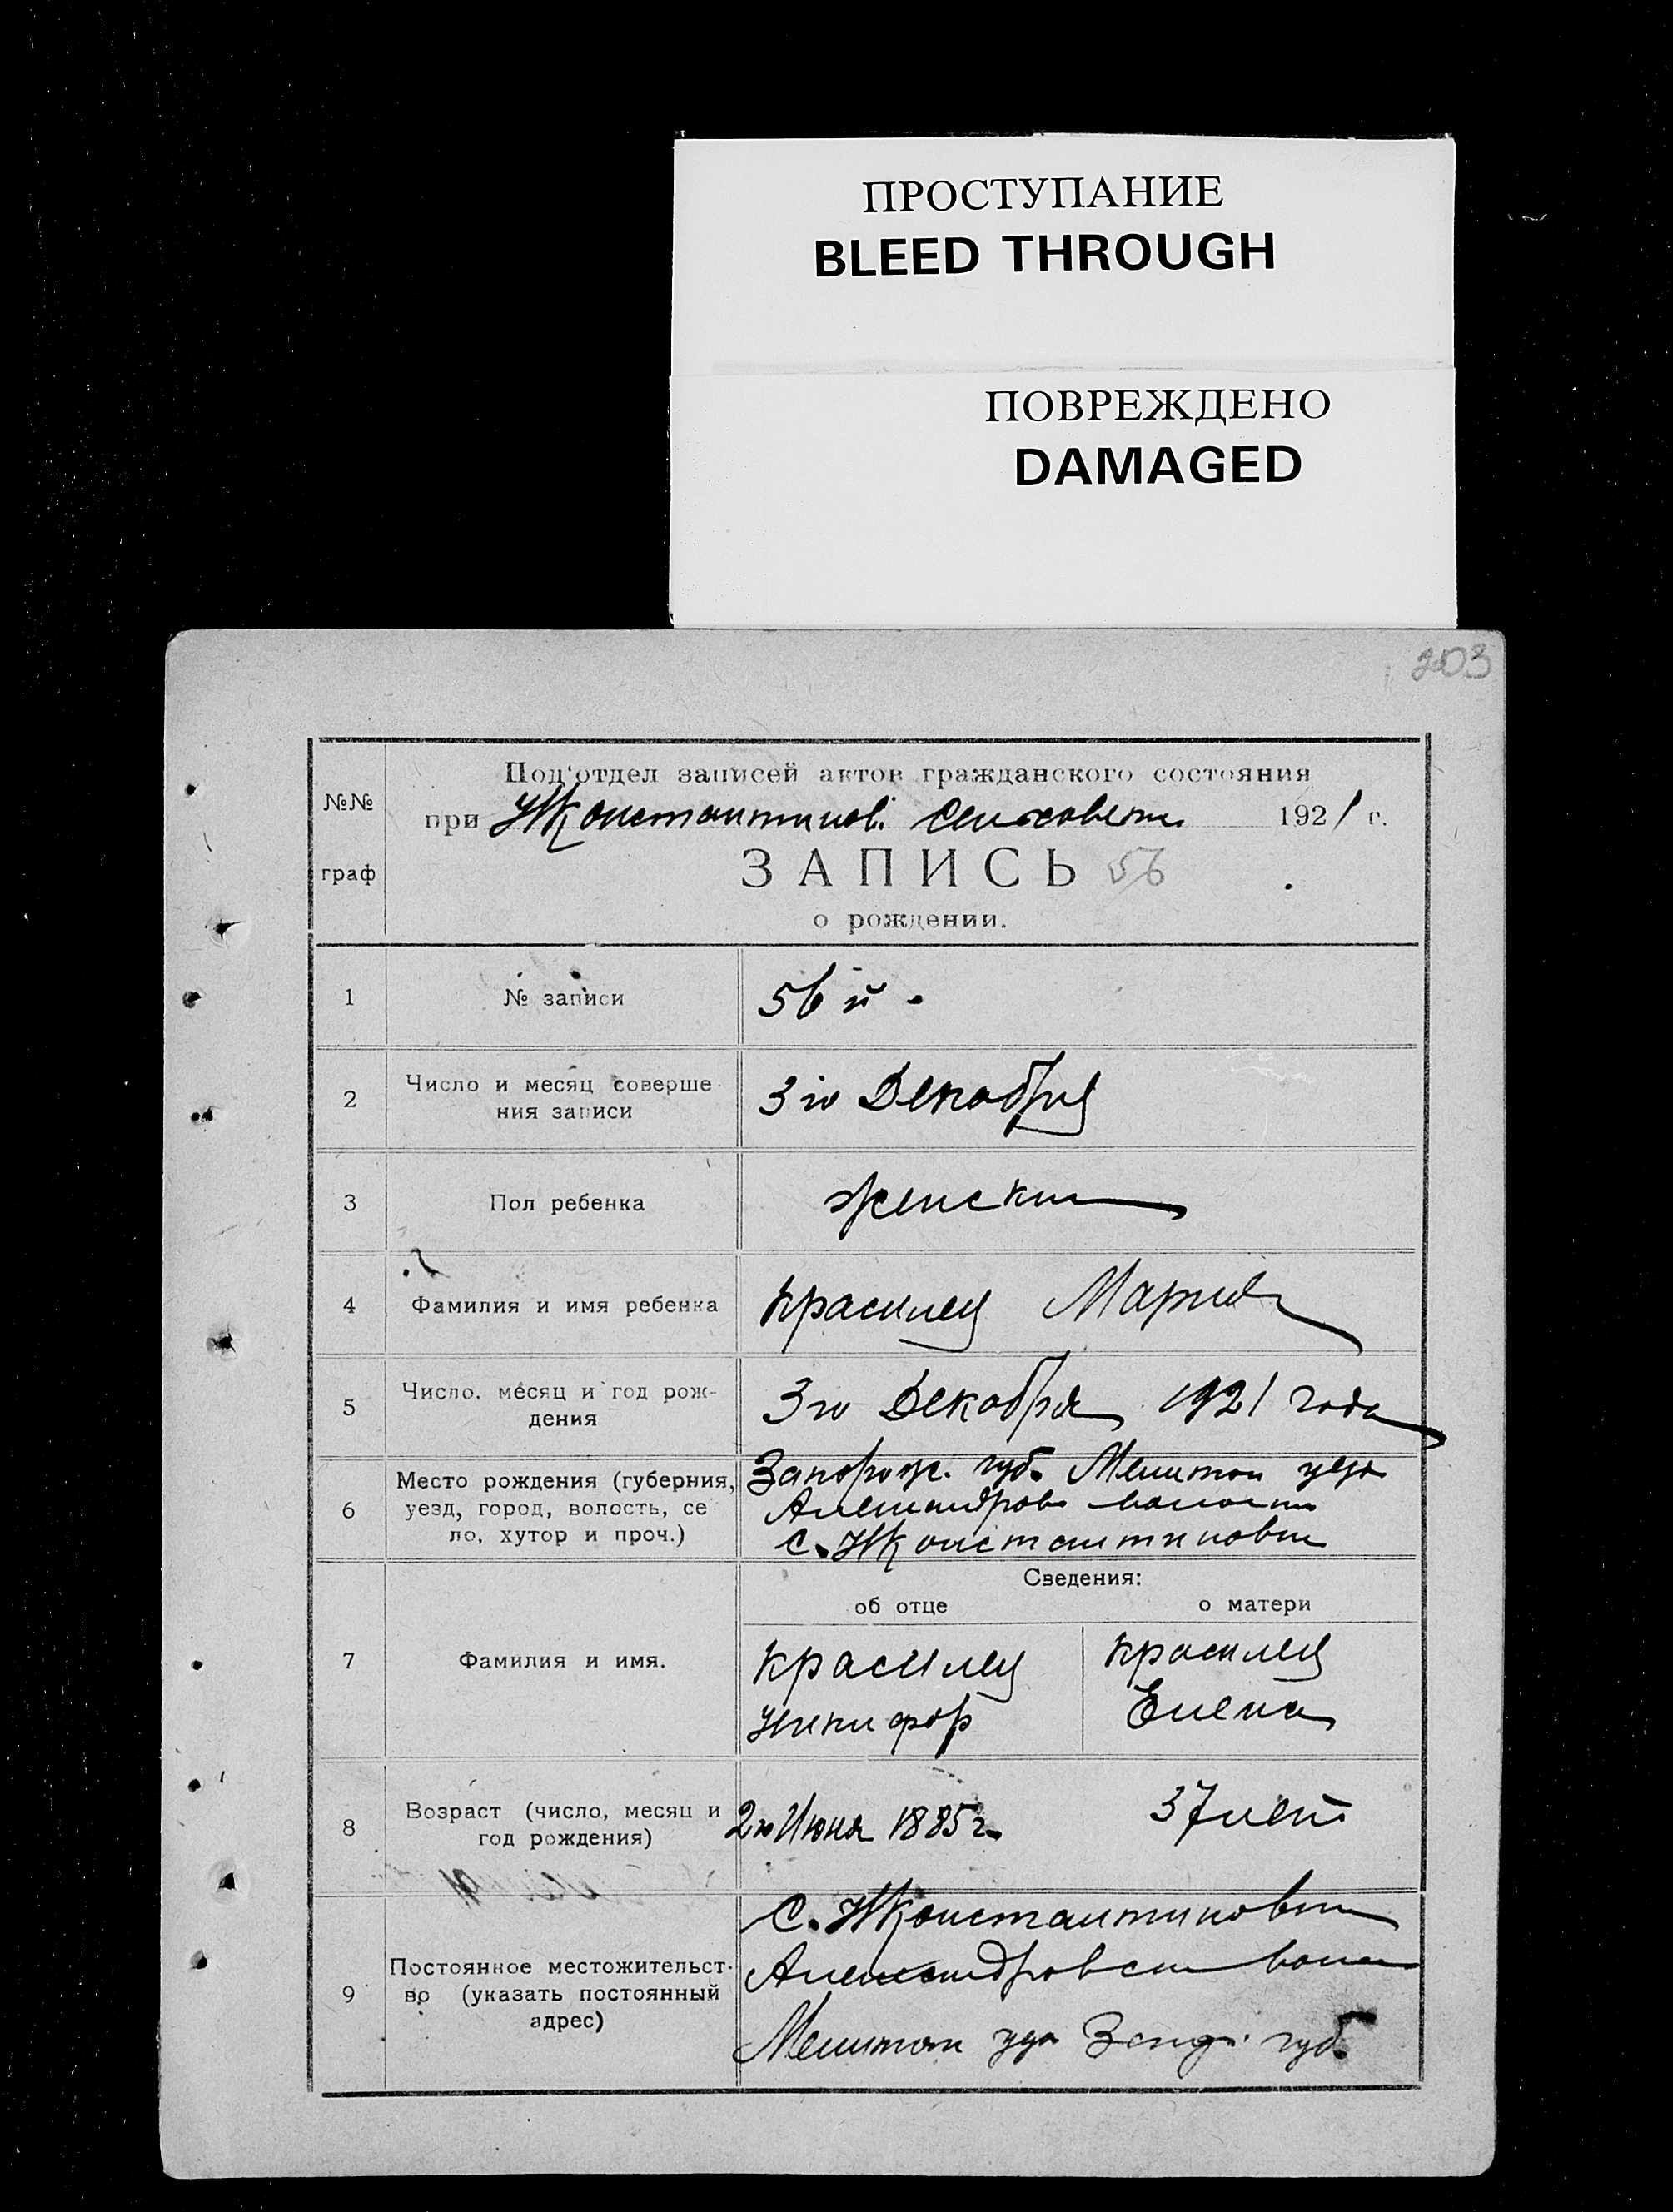 ПРОСТУПАНИЕ
BLEED THROUGH
ПОВРЕЖДЕНО
DAMAGED
203
№№
граф
Под'отдел записей актов гражданского состояния
при НКонстантинов. сельсовете 1921 г.
ЗАПИСЬ 56
о рождении.
1 № записи 56й.
2 Число и месяц соверше
ния записи 3го Декабря
3 Пол ребенка женский
4 Фамилия и имя ребенка Красилец Мария
5 Число. месяц и год рож-
дения 3го Декабря 1921 года
6 Место рождения (губерния,
уезд, город, волость, се
ло, хутор и проч.)
Запорож. губ. Мелитоп уезд
Александров волости
С. НКонстантиновки
Сведения:
об отце о матери
7 Фамилия и имя.
Красилец Красилец
Никифор Елена
8 Возраст (число, месяц и
год рождения)
2го Июня 1885г. 37 лет
9 Постоянное местожительст-
во (указать постоянный
адрес)
С. НКонстантиновки
Александровской
Мелитоп губ.